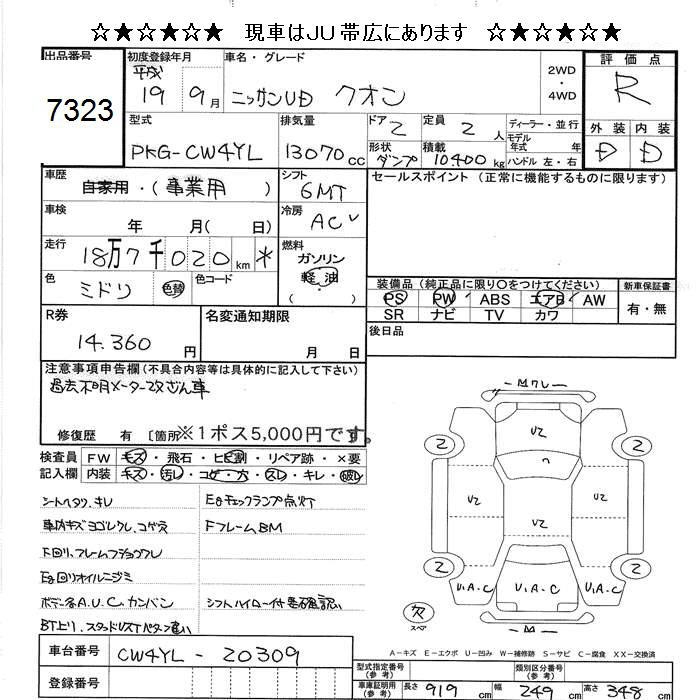 ☆★☆★☆ 現車はJU帯広にあります ☆★☆★☆
出品番号
7323
初度登録年月
平成
19 9月
車名・グレード
ニッサンUD クオン
2WD
4WD
評価点
R
外装 内装
D D
型式
PKG-CW4YL
排気量
13070cc
ドア 2
定員 2人
形状 ダンプ
積載 10400kg
ディーラー・並行
モデル年式 年
ハンドル 左・右
車歴
自家用・(事業用)
シフト
6MT
セールスポイント (正常に機能するものに限ります)
車検
年 月( 日)
冷房
AC
走行
18万7千020km *
燃料
ガソリン
軽油
( )
色
ミドリ
色替
色コード
装備品(純正品に限り○をつけてください)
PS PW ABS エアB AW
SR ナビ TV カワ
新車保証書
有・無
R券
14.360円
名変通知期限
月 日
後日品
注意事項申告欄(不具合内容等は具体的に記入して下さい)
過去不明メーター改ざん車
修復歴 有 〔箇所※1ポス5,000円です。
検査員記入欄
FW キズ・飛石・ヒビ割・リペア跡・×要
内装 キズ・汚レ・コゲ・穴・スレ・キレ・破レ
シートヘタリ、キレ
Egチェックランプ点灯
車内キズヨゴレクレ、コゲ穴
FフレームBM
下回リ、フレームフショウクレ
Eg回りオイルニジミ
ボデー各A.U.C.カンバン
シフトハイロー付 要確認
BT上リ、スタッドレスTパターン違い
Mクレ
U2
U2
U2
U2
2
2
2
2
U.A.C
U.A.C
U.A.C
M
スペ
A-キズ E-エクボ U-凹み W-補修跡 S-サビ C-腐食 XX-交換済
車台番号
CW4YL-20309
登録番号
型式指定番号(参考)
類別区分番号(参考)
車庫証明用(参考)
長さ 919cm 幅 249cm 高さ 348cm